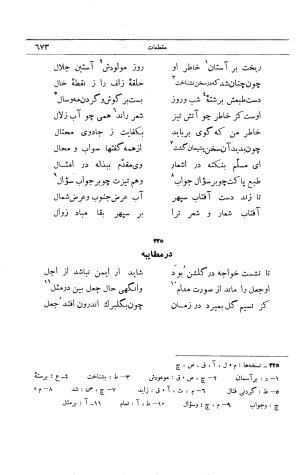 مقطعات ۶۷۳
ریخت بر آستان۱ خاطر او روز مولودش۲ آستین جلال
چون چنان شد که در سخن نشناخت۳ حلقهٔ زلف را ز نقطهٔ خال
دست طبعش برشتهٔ۴ شب و روز بست بر گوش و گردن مه و سال۵
اوست کز خاطر چو آتش تیز شعر راند۶ همی چو آب زلال
خاطر من که گوی برباید بکفایت ز جادوی محتال
چون بدید آن سخن پشیمان گشت۷ از همه گفتها صواب و محال
ای مسلّم بنکته در اشعار وی مقدّم ببذله در امثال
طبع پاکت چو بر سؤال جواب۸ وهم تیزت چو بر جواب سؤال۹
تا زند دست آفتاب سپهر آب عرض جنوب و عرض شمال
آفتاب شعار و شعر ترا بر سپهر بقا مباد زوال
۴۲۵
در مطایبه
تا نشست خواجه در گلشن بُوَد شاید ار ایمن نباشد از اجل
او جعل را ماند از صورت مدام۱۰ وانگهی حال جعل بین در مثل۱۱
کز نسیم گل بمیرد در زمان چون بگلبرگ اندرون افتد جعل
۴۲۵ ـ نسخه‌ها: م ، ل ، آ ، ق ، ص ، چ
۱ـ د: برآسمان ۲ـ چ، ص، ق: موعودش ۳ـ ط: بشناخت ۴ـ ع: برستهٔ
۵ـ ط: گردنی فتال ۶ـ م، ت، آ، ق: زاید ۷ـ چ، ص: شد ۸ـ م،
چ: وجواب ۹ـ م، چ: وسؤال ۱۰ـ ط، آ: تمام ۱۱ـ آ: برمثل